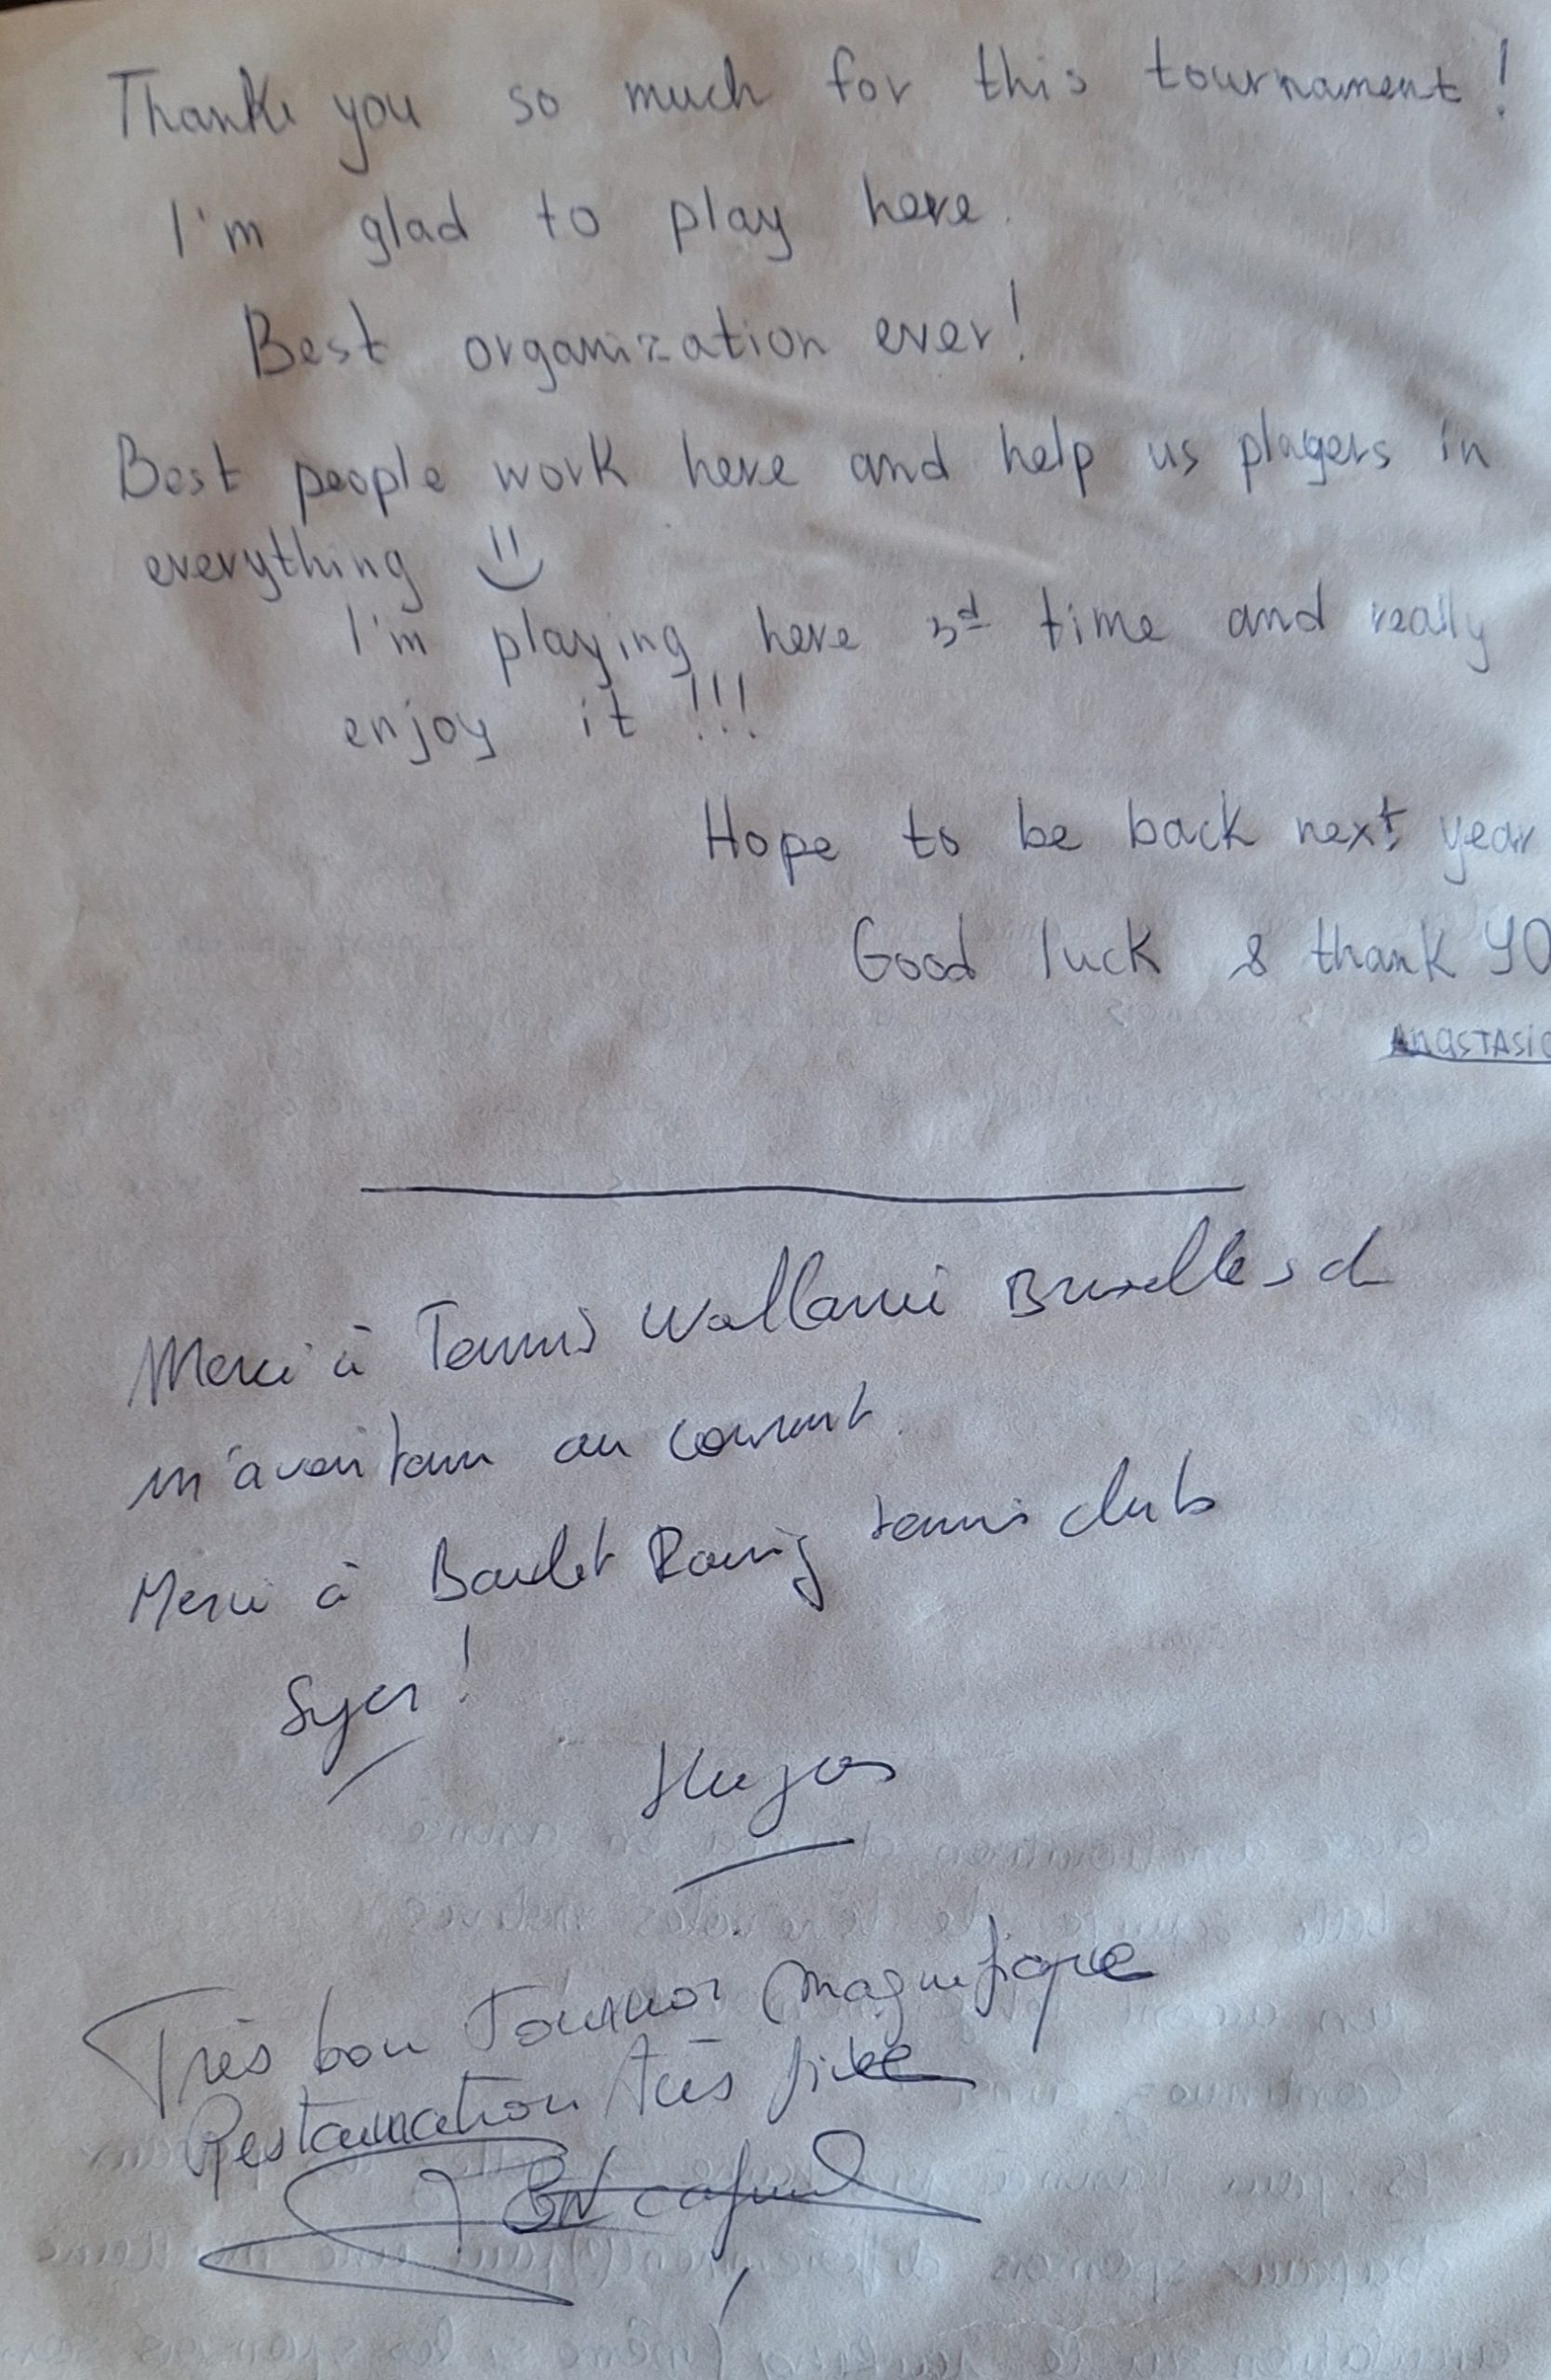 Thank you so much for this tournament!
I'm glad to play here.
Best organization ever!
Best people work here and help us players in
everything
I'm playing here 3d time and really
enjoy it !!!
Hope to be back next year
Good luck & thank YO
Anastasi
Merci à Tennis Wallonie Bruxelles d
m'avoir tenu au courant.
Merci à Baudet Racing tennis club
Hugos
Très bon Tournoi magnifique
Restauration très